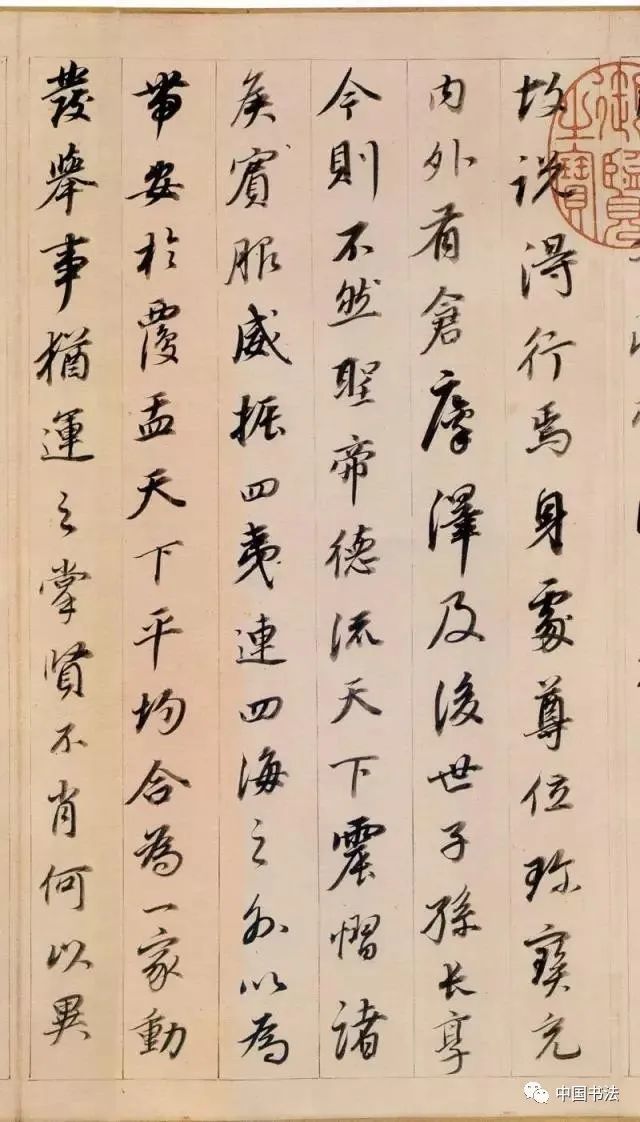 故説得行焉身處尊位珎寳充
内外有倉廩澤及後世子孫長享
今則不然聖帝德流天下震慴諸
侯賓服威振四夷連四海之外以為
帶安於覆盂天下平均合為一家動
發舉事猶運之掌賢不肖何以異
御覽之寶
中国书法